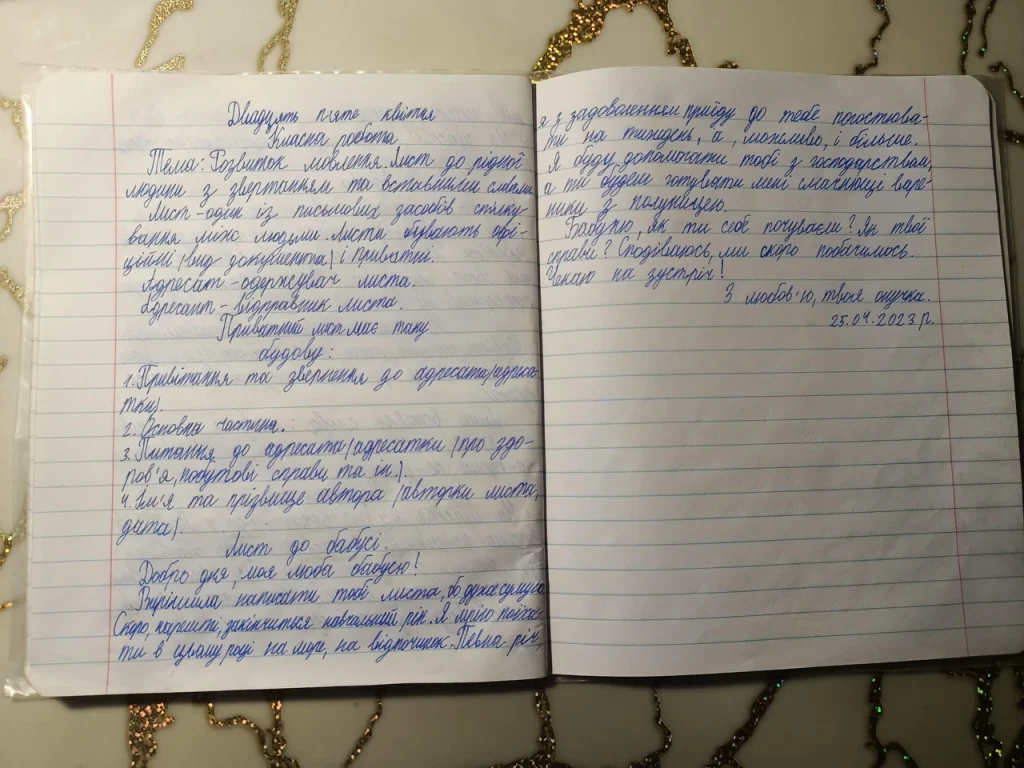 Двадцять п'яте квітня
Класна робота
Тема: Розвиток мовлення. Лист до рідної
людини з звертанням та вставними словами
Лист - один із письмових засобів спілку-
вання між людьми. Листи бувають офі-
ційні (вид документа) і приватні.
Адресат - одержувач листа.
Адресант - відправник листа.
Приватний лист має таку
будову:
1. Привітання та звернення до адресата (адреса-
тки).
2. Основна частина.
3. Питання до адресата (адресатки) (про здо-
ров'я, побутові справи та ін.).
4. Ім'я та прізвище автора (авторки листа,
дата).
Лист до бабусі.
Добро дня, моя люба бабусю!
Вирішила написати тобі листа, бо дуже сумую.
Скоро, нарешті, закінчиться навчальний рік. Я мрію поїха-
ти в цьому році на море, на відпочинок. Певна річ,
я з задоволенням приїду до тебе погостюва-
ти на тиждень, а, можливо, і більше.
Я буду допомагати тобі з господарством,
а ти будеш готувати мені смачнющі варе-
ники з полуницею.
Бабусю, як ти себе почуваєш? Як твої
справи? Сподіваюсь, ми скоро побачимось.
Чекаю на зустріч!
З любов'ю, твоя онучка.
25.04.2023 р.